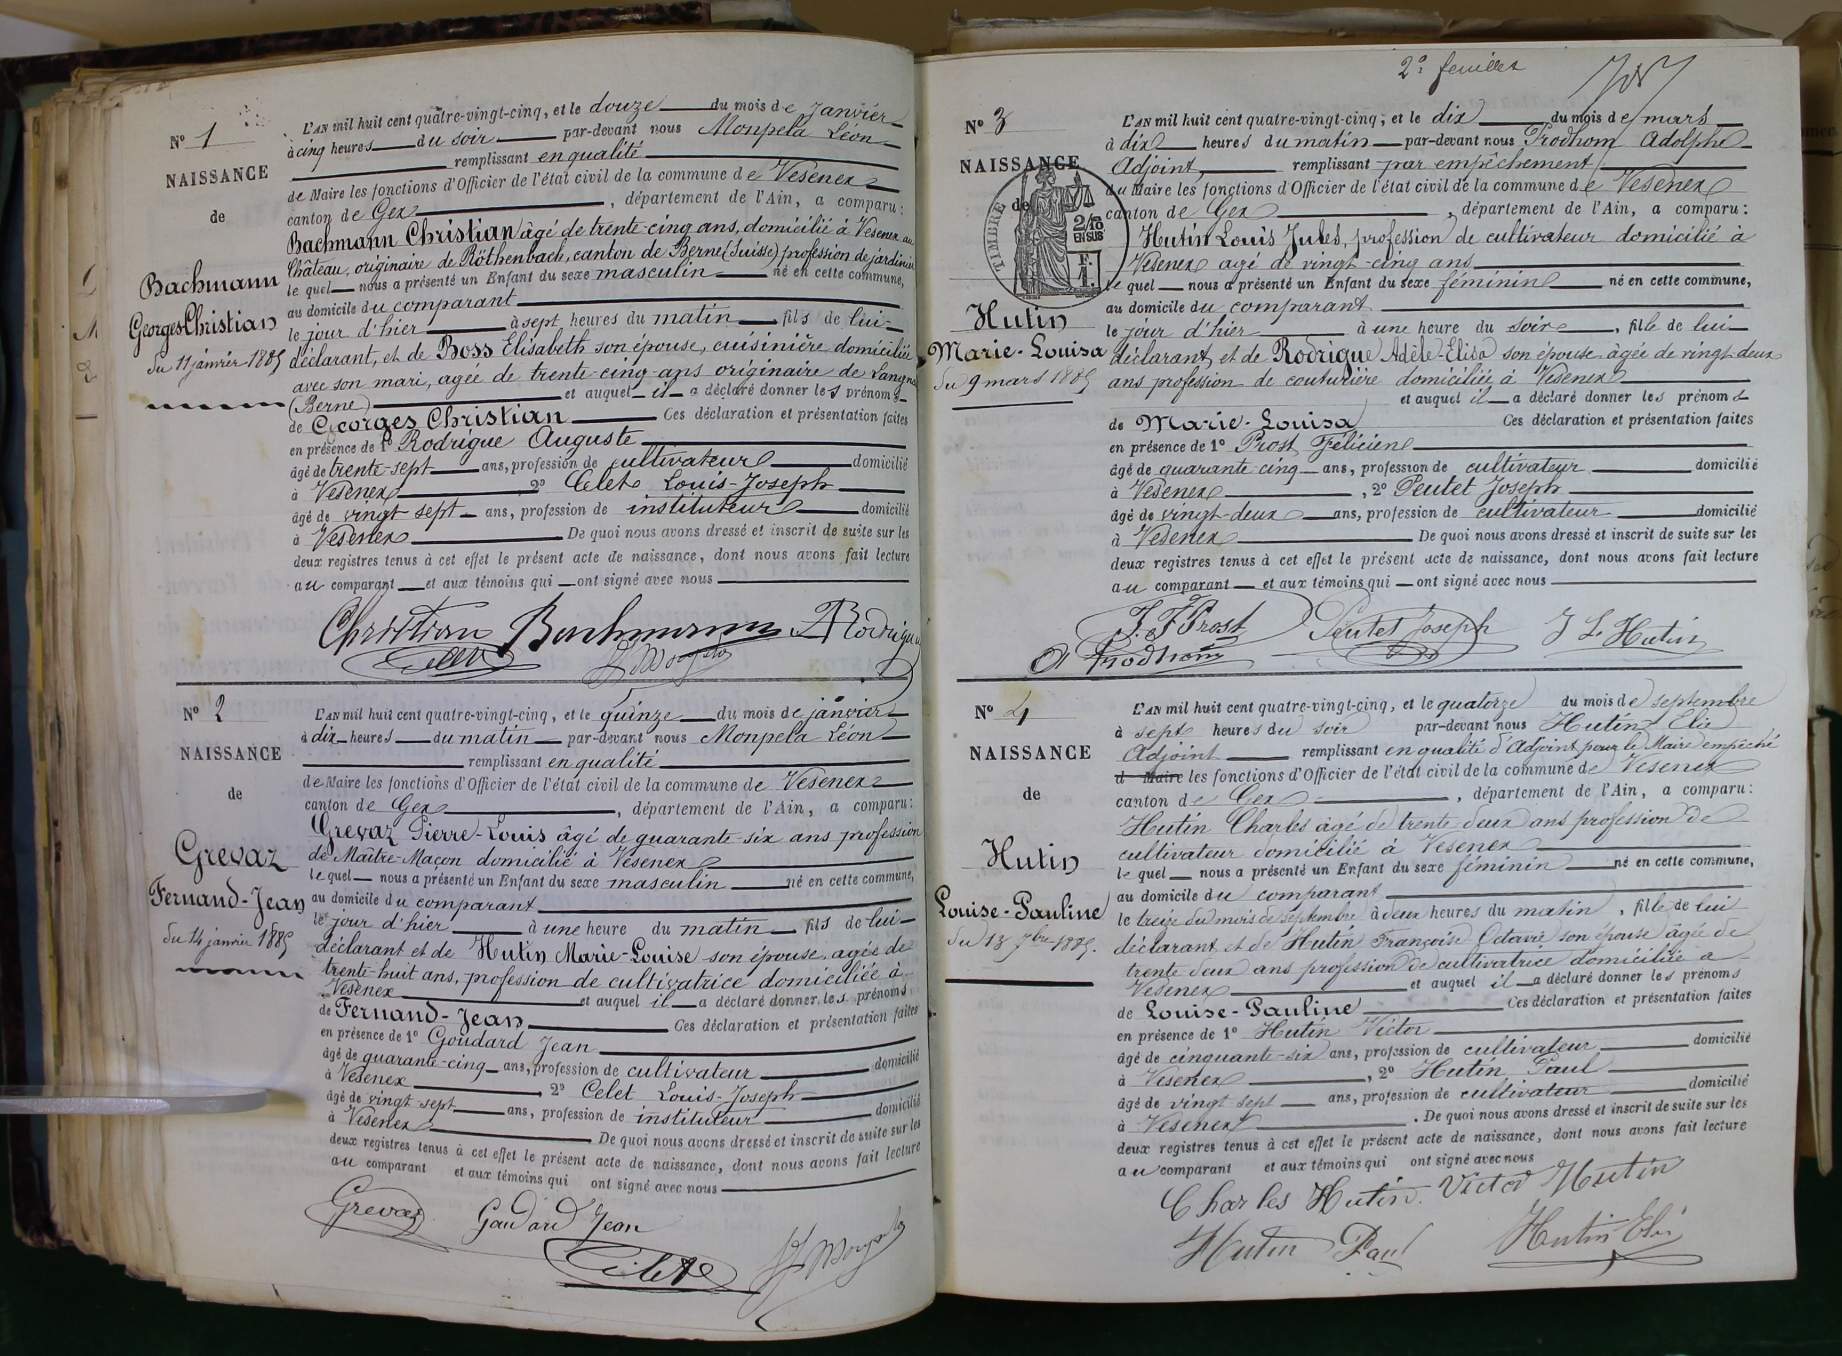 Nº 1
NAISSANCE
de
Bachmann
Georges Christian
du 11 janvier 1885
L'AN mil huit cent quatre-vingt-cinq, et le douze du mois de janvier
à cinq heures du soir par-devant nous Monpela Léon
remplissant en qualité
de Maire les fonctions d'Officier de l'état civil de la commune de Vesenex
canton de Gex, département de l'Ain, a comparu:
Bachmann Christian âgé de trente-cinq ans, domicilié à Vesenex au
Château, originaire de Röthenbach, canton de Berne (Suisse) profession de jardinier
le quel nous a présenté un Enfant du sexe masculin né en cette commune,
au domicile du comparant
le jour d'hier à sept heures du matin fils de lui
déclarant, et de Boss Elisabeth son épouse, cuisinière domiciliée
avec son mari, agée de trente-cinq ans originaire de Langnau
(Berne) et auquel il a déclaré donner les prénoms
de Georges Christian Ces déclaration et présentation faites
en présence de 1º Rodrigue Auguste
âgé de trente-sept ans, profession de cultivateur domicilié
à Vesenex 2º Celet Louis-Joseph
âgé de vingt sept ans, profession de instituteur domicilié
à Vesenex De quoi nous avons dressé et inscrit de suite sur les
deux registres tenus à cet effet le présent acte de naissance, dont nous avons fait lecture
au comparant et aux témoins qui ont signé avec nous
Christian Bachmann A Rodrigue
Celet L Monpela
Nº 2
NAISSANCE
de
Grevaz
Fernand-Jean
du 14 janvier 1885
L'AN mil huit cent quatre-vingt-cinq, et le quinze du mois de janvier
à dix heures du matin par-devant nous Monpela Léon
remplissant en qualité
de Maire les fonctions d'Officier de l'état civil de la commune de Vesenex
canton de Gex, département de l'Ain, a comparu:
Grevaz Pierre-Louis âgé de quarante-six ans profession
de Maître-Maçon domicilié à Vesenex
le quel nous a présenté un Enfant du sexe masculin né en cette commune,
au domicile du comparant
le jour d'hier à une heure du matin fils de lui
déclarant et de Hutin Marie-Louise son épouse, agée de
trente-huit ans, profession de cultivatrice domiciliée à
Vesenex et auquel il a déclaré donner les prénoms
de Fernand-Jean Ces déclaration et présentation faites
en présence de 1º Goudard Jean
âgé de quarante-cinq ans, profession de cultivateur domicilié
à Vesenex 2º Celet Louis-Joseph
âgé de vingt sept ans, profession de instituteur domicilié
à Vesenex De quoi nous avons dressé et inscrit de suite sur les
deux registres tenus à cet effet le présent acte de naissance, dont nous avons fait lecture
au comparant et aux témoins qui ont signé avec nous
Grevaz Goudard Jean
Celet L Monpela
2e feuillet
Nº 3
NAISSANCE
de
TIMBRE
2/10
EN SUS
F.
1.
Hutin
Marie-Louisa
du 9 mars 1885
L'AN mil huit cent quatre-vingt-cinq, et le dix du mois de mars
à dix heures du matin par-devant nous Prodhom Adolphe
Adjoint, remplissant par empêchement
du Maire les fonctions d'Officier de l'état civil de la commune de Vesenex
canton de Gex, département de l'Ain, a comparu:
Hutin Louis Jules, profession de cultivateur domicilié à
Vesenex agé de vingt-cinq ans
le quel nous a présenté un Enfant du sexe féminin né en cette commune,
au domicile du comparant
le jour d'hier à une heure du soir, fille de lui
déclarant, et de Rodrigue Adèle-Elisa son épouse agée de vingt-deux
ans profession de couturière domiciliée à Vesenex
et auquel il a déclaré donner les prénoms
de Marie-Louisa Ces déclaration et présentation faites
en présence de 1º Prost Félicien
âgé de quarante cinq ans, profession de cultivateur domicilié
à Vesenex, 2º Peutet Joseph
âgé de vingt-deux ans, profession de cultivateur domicilié
à Vesenex De quoi nous avons dressé et inscrit de suite sur les
deux registres tenus à cet effet le présent acte de naissance, dont nous avons fait lecture
au comparant et aux témoins qui ont signé avec nous
J. F Prost Peutet Joseph J L Hutin
A Prodhom
Nº 4
NAISSANCE
de
Hutin
Louise-Pauline
du 13 7bre 1885.
L'AN mil huit cent quatre-vingt-cinq, et le quatorze du mois de septembre
à sept heures du soir par-devant nous Hutin Elie
Adjoint remplissant en qualité d'Adjoint pour le Maire empêché
d Maire les fonctions d'Officier de l'état civil de la commune de Vesenex
canton de Gex, département de l'Ain, a comparu:
Hutin Charles âgé de trente deux ans profession de
cultivateur domicilié à Vesenex
le quel nous a présenté un Enfant du sexe féminin né en cette commune,
au domicile du comparant
le treize du mois de septembre à deux heures du matin, fille de lui
déclarant et de Hutin Françoise Octavie son épouse âgée de
trente deux ans profession de cultivatrice domiciliée à
Vesenex et auquel il a déclaré donner les prénoms
de Louise-Pauline Ces déclaration et présentation faites
en présence de 1º Hutin Victor
âgé de cinquante-six ans, profession de cultivateur domicilié
à Vesenex, 2º Hutin Paul
âgé de vingt sept ans, profession de cultivateur domicilié
à Vesenex. De quoi nous avons dressé et inscrit de suite sur les
deux registres tenus à cet effet le présent acte de naissance, dont nous avons fait lecture
au comparant et aux témoins qui ont signé avec nous
Charles Hutin. Victor Hutin
Hutin Paul Hutin Elie